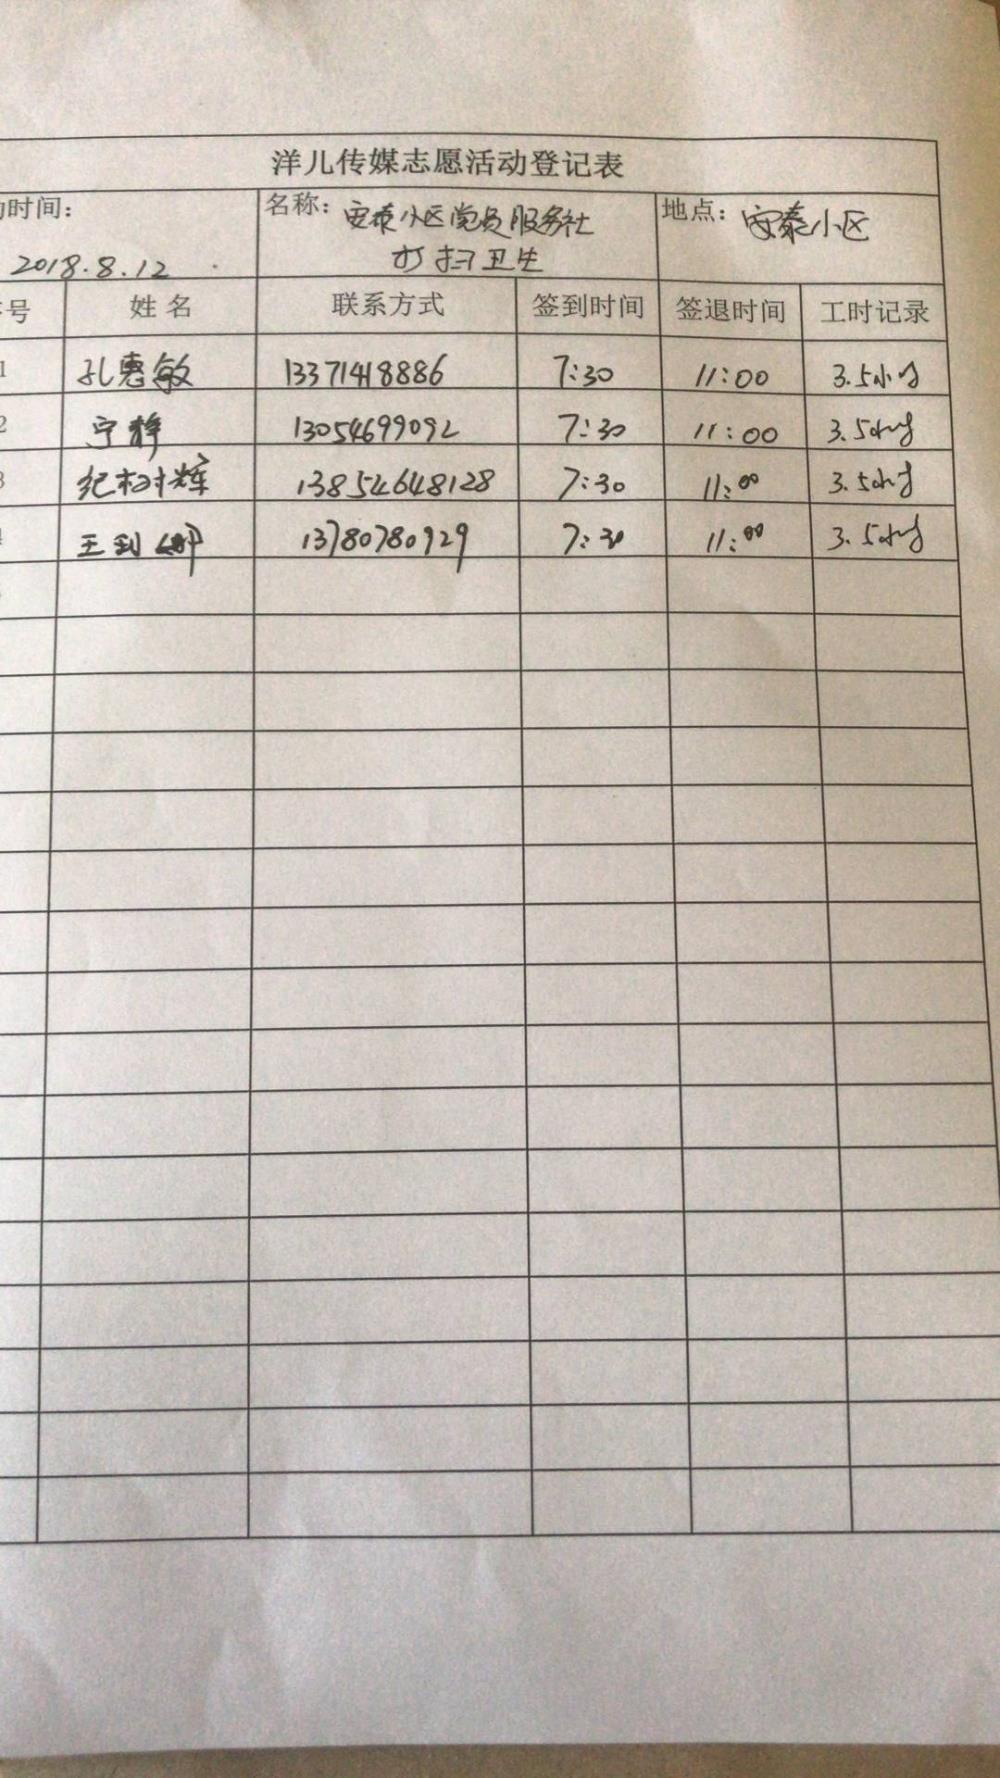 洋儿传媒志愿活动登记表
动时间: 名称: 安泰小区党员服务社 地点: 安泰小区
2018.8.12 打扫卫生
号 姓名 联系方式 签到时间 签退时间 工时记录
1 孔惠敏 13371418886 7:30 11:00 3.5小时
2 宁静 13054699092 7:30 11:00 3.5小时
3 纪树辉 13854648128 7:30 11:00 3.5小时
4 王到 13780780929 7:30 11:00 3.5小时